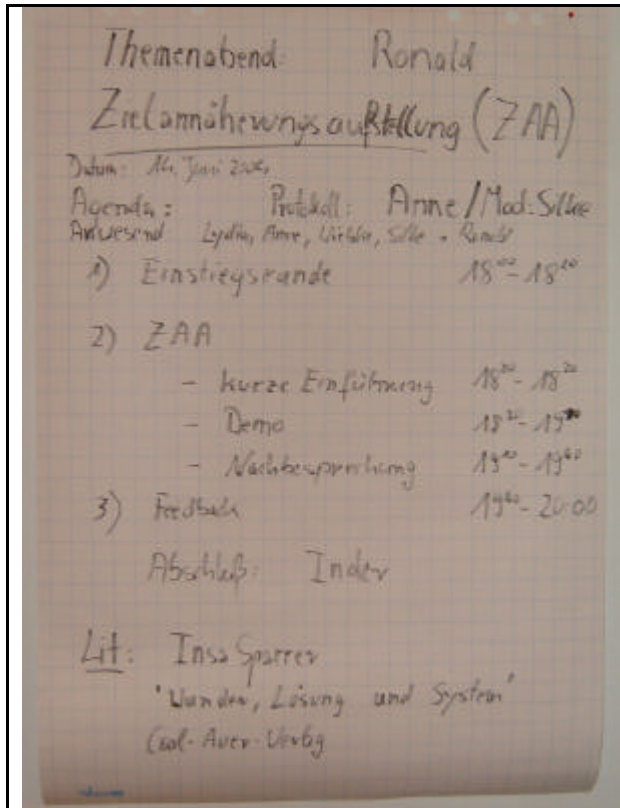 Themenabend: Ronald
Zielannäherungsaufstellung (ZAA)
Datum: 14. Juni
Agenda: Protokoll: Anne / Mod: Silke
Anwesend Lydia, Anne, Silke + Ronald
1) Einstiegsrunde 18⁰⁰ - 18²⁰
2) ZAA
- kurze Einführung 18²⁰ - 18³⁰
- Demo
- Nachbesprechung
3) Feedback 19⁴⁰ - 20:00
Abschluß: Inder
Lit: Insa Sparrer
'Wunder, Lösung und System'
Carl-Auer-Verlag